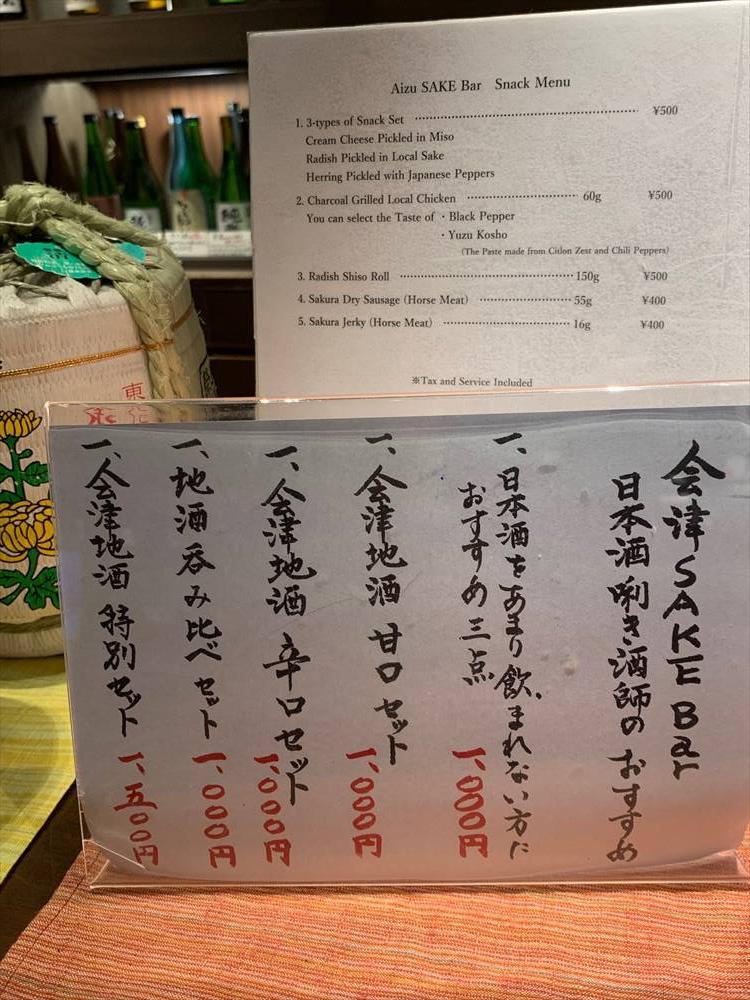 Aizu SAKE Bar Snack Menu
1. 3-types of Snack Set ¥500
Cream Cheese Pickled in Miso
Radish Pickled in Local Sake
Herring Pickled with Japanese Peppers
2. Charcoal Grilled Local Chicken 60g ¥500
You can select the Taste of ・Black Pepper
・Yuzu Kosho
(The Paste made from Citlon Zest and Chili Peppers)
3. Radish Shiso Roll 150g ¥500
4. Sakura Dry Sausage (Horse Meat) 55g ¥400
5. Sakura Jerky (Horse Meat) 16g ¥400
※Tax and Service Included
会津SAKE Bar
日本酒唎き酒師のおすすめ
一、日本酒をあまり飲まれない方に
おすすめ三点 一、000円
一、会津地酒 甘口セット 一、000円
一、会津地酒 辛口セット 一、000円
一、地酒呑み比べセット 一、000円
一、会津地酒 特別セット 一、五00円